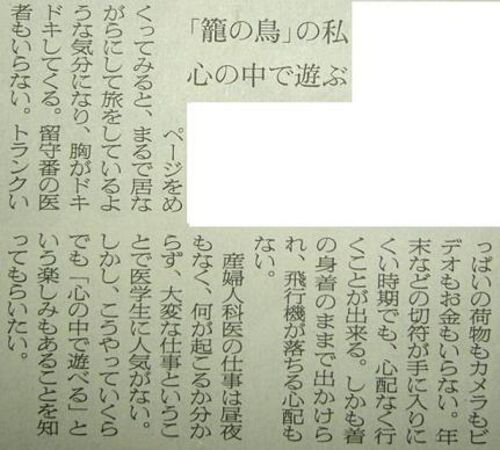 「籠の鳥」の私
心の中で遊ぶ
ページをめ
くってみると、まるで居な
がらにして旅をしているよ
うな気分になり、胸がドキ
ドキしてくる。留守番の医
者もいらない。トランクい
っぱいの荷物もカメラもビ
デオもお金もいらない。年
末などの切符が手に入りに
くい時期でも、心配なく行
くことが出来る。しかも着
の身着のままで出かけら
れ、飛行機が落ちる心配も
ない。
産婦人科医の仕事は昼夜
もなく、何が起こるか分か
らず、大変な仕事というこ
とで医学生に人気がない。
しかし、こうやっていくら
でも「心の中で遊べる」と
いう楽しみもあることを知
ってもらいたい。